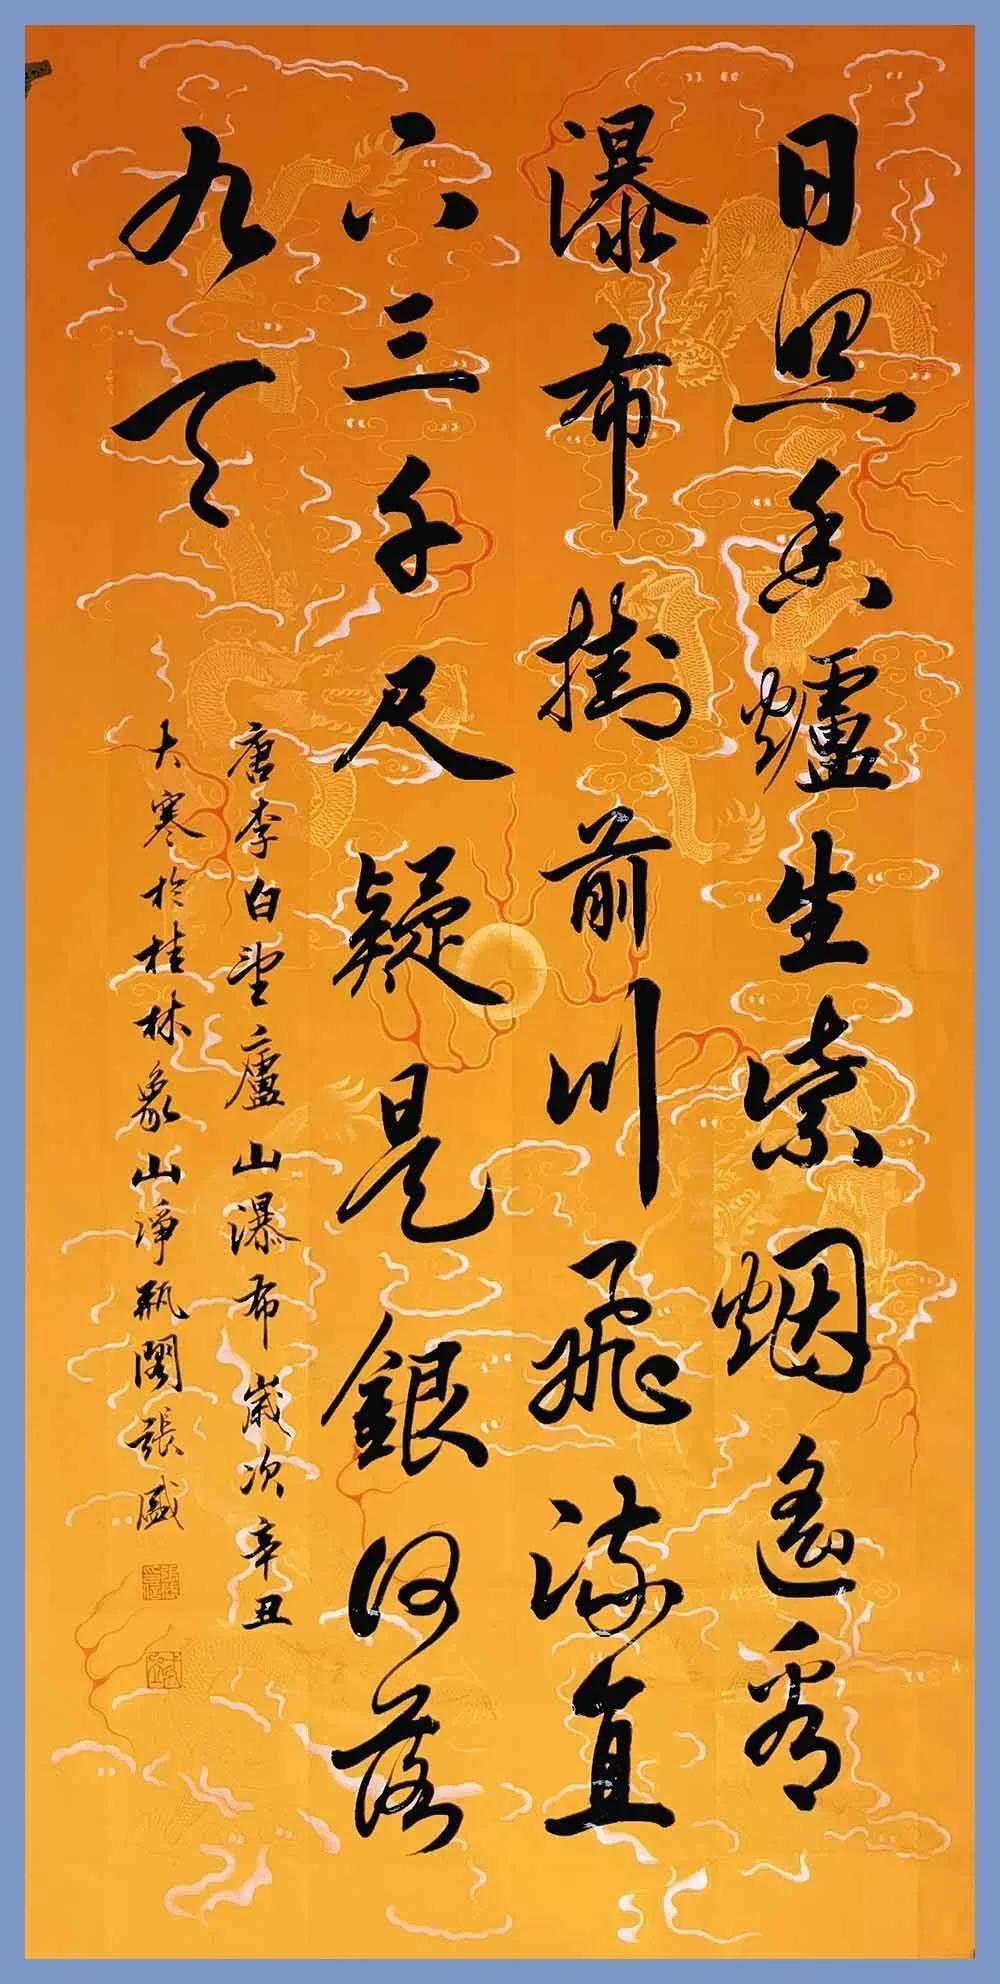 日照香爐生紫烟遙看
瀑布掛前川飛流直
下三千尺疑是銀河落
九天
唐李白望廬山瀑布歲次辛丑
大寒於桂林象山淨瓶閣張盛